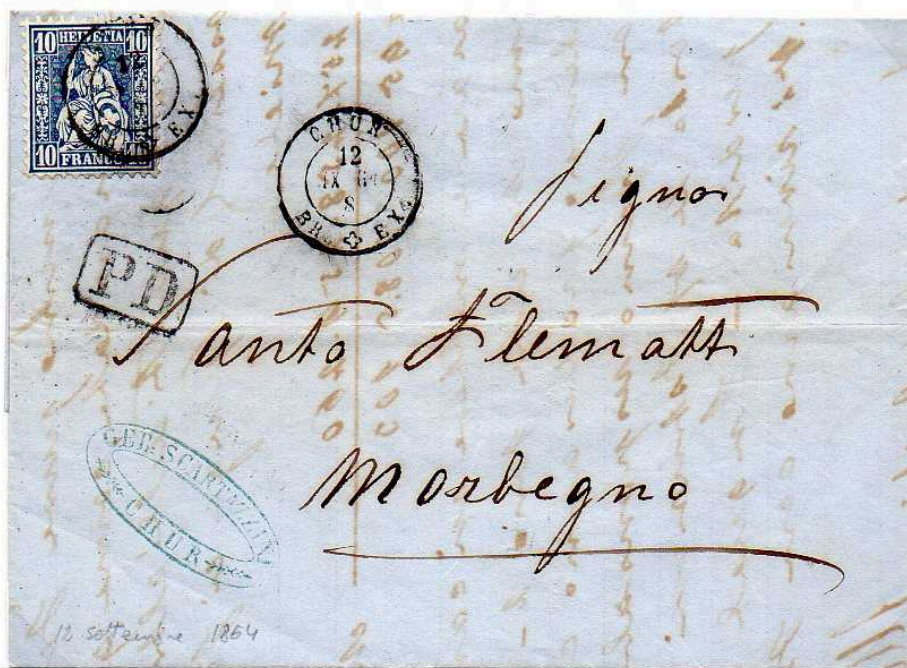 10 HELVETIA 10
10 FRANCO 10
12
EX.
CHUR
12
IX 64
8
BR. EX.
PD
Signor
Santo Flematti
Morbegno
GEB. SCARTAZZINI
CHUR
12 settembre 1864